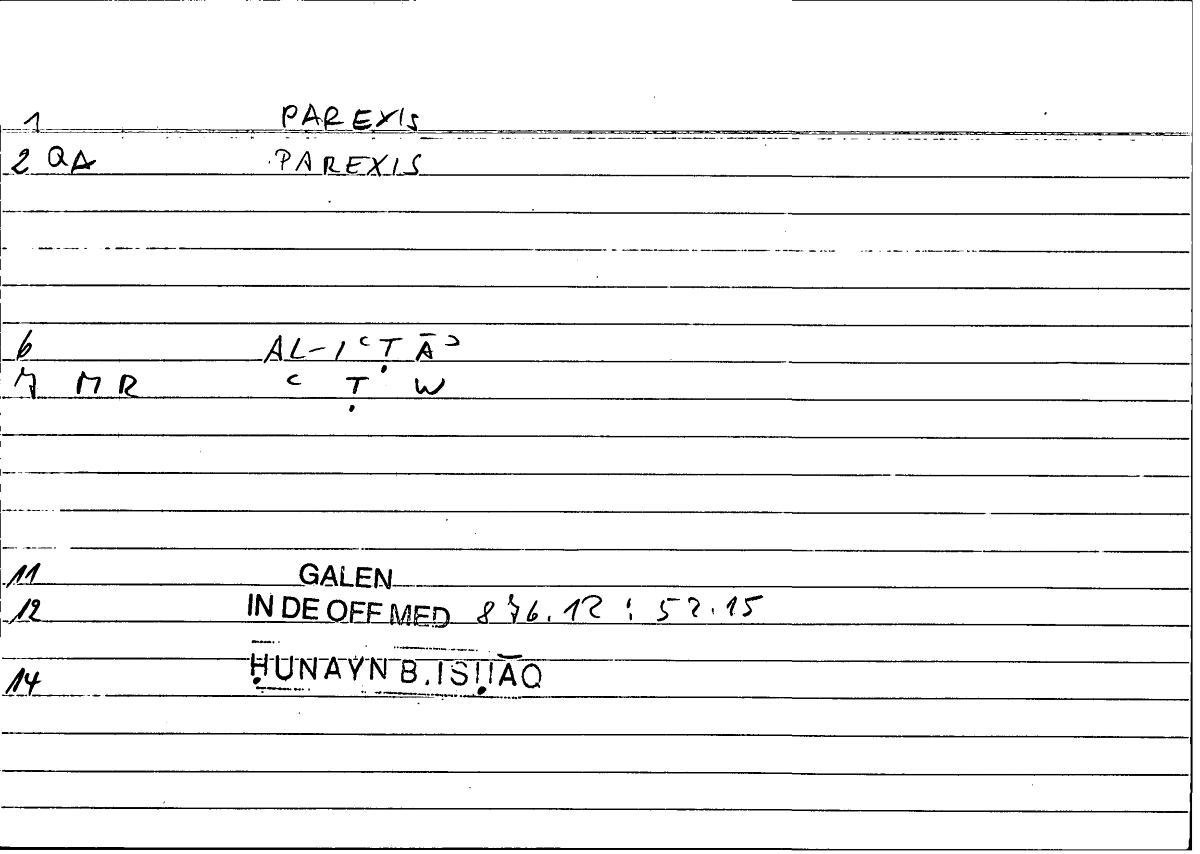 1 PAREXIS
2 QA PAREXIS
6 AL-IʿṬĀʾ
7 MR ʿ Ṭ W
11 GALEN
12 IN DE OFF MED 876.12 : 52.15
14 ḤUNAYN B. ISḤĀQ